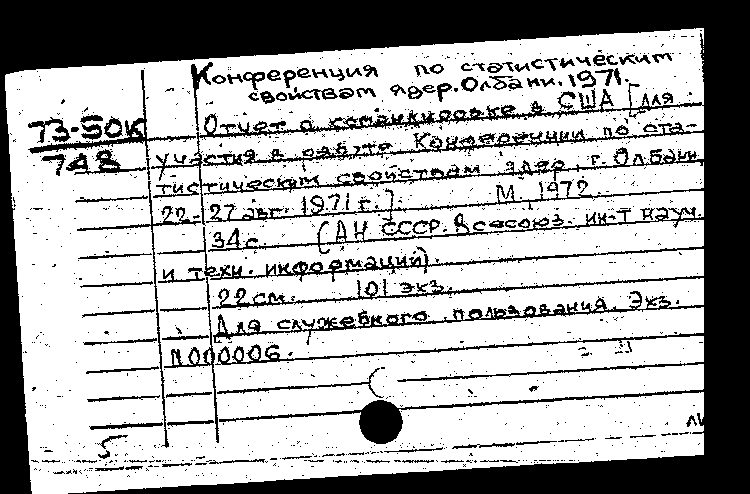 Конференция по статистическим
свойствам ядер. Олбани. 1971.
73-50К
748
Отчет о командировке в США [для
участия в работе Конференции по ста-
тистическим свойствам ядер, г. Олбани,
22-27 авг. 1971 г.]. М., 1972.
34 с. (АН СССР. Всесоюз. ин-т науч.
и техн. информации).
22 см. 101 экз.
Для служебного пользования. Экз.
N 000006.
5